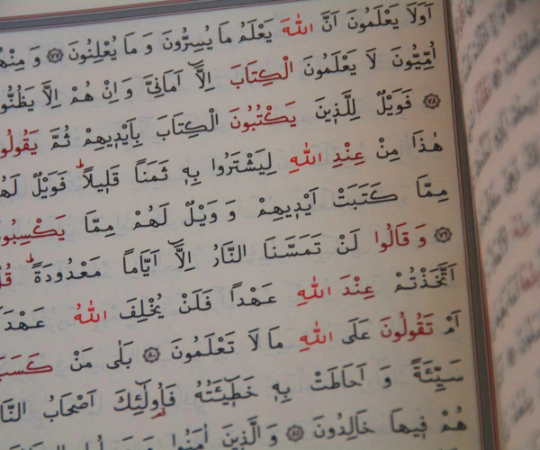 اَوَلَا يَعْلَمُونَ اَنَّ اللّٰهَ يَعْلَمُ مَا يُسِرُّونَ وَ مَا يُعْلِنُونَ ﴿٧٧﴾ وَ مِنْهُ
اُمِّيُّونَ لَا يَعْلَمُونَ الْكِتَابَ اِلَّٓا اَمَانِىَّ وَ اِنْ هُمْ اِلَّا يَظُنُّو
﴿٧٨﴾ فَوَيْلٌ لِلَّذِينَ يَكْتُبُونَ الْكِتَابَ بِاَيْدِيهِمْ ثُمَّ يَقُولُو
هٰذَا مِنْ عِنْدِ اللّٰهِ لِيَشْتَرُوا بِهٖ ثَمَنًا قَلٖيلًاؕ فَوَيْلٌ لَهُ
مِمَّا كَتَبَتْ اَيْدٖيهِمْ وَ وَيْلٌ لَهُمْ مِمَّا يَكْسِبُو
﴿٧٩﴾ وَ قَالُوا لَنْ تَمَسَّنَا النَّارُ اِلَّٓا اَيَّامًا مَعْدُودَةًؕ قُلْ
اَتَّخَذْتُمْ عِنْدَ اللّٰهِ عَهْدًا فَلَنْ يُخْلِفَ اللّٰهُ عَهْدَ
اَمْ تَقُولُونَ عَلَى اللّٰهِ مَا لَا تَعْلَمُونَ ﴿٨٠﴾ بَلٰى مَنْ كَسَبَ
سَيِّئَةً وَ اَحَاطَتْ بِهٖ خَطٖٓيـَٔتُهُ فَاُو۬لٰٓئِكَ اَصْحَابُ النَّا
هُمْ فٖيهَا خَالِدُونَ ﴿٨١﴾ وَ الَّذٖينَ اٰمَنُوا وَ